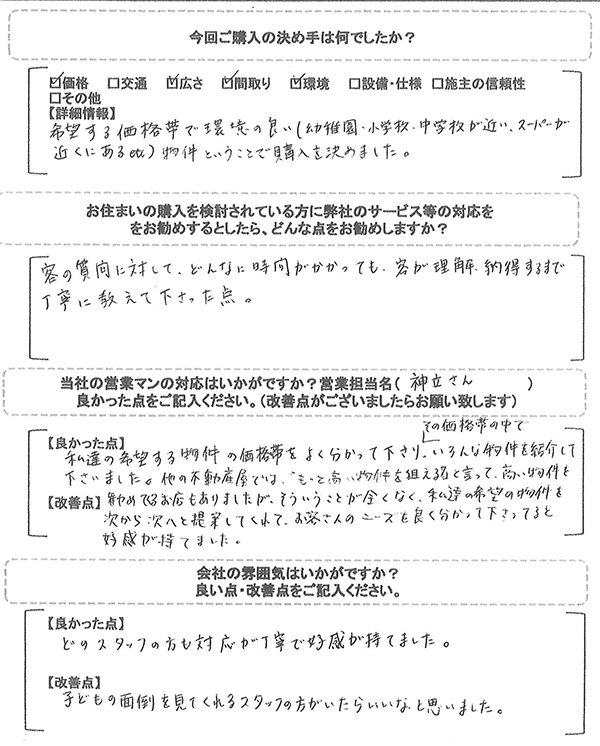 今回ご購入の決め手は何でしたか？
☑価格 □交通 ☑広さ ☑間取り ☑環境 □設備・仕様 □施主の信頼性
□その他
【詳細情報】
希望する価格帯で環境の良い(幼稚園・小学校・中学校が近い、スーパーが
近くにあるetc)物件ということで購入を決めました。
お住まいの購入を検討されている方に弊社のサービス等の対応を
をお勧めするとしたら、どんな点をお勧めしますか？
客の質問に対して、どんなに時間がかかっても、客が理解、納得するまで
丁寧に教えて下さった点。
当社の営業マンの対応はいかがですか？営業担当名( 神立さん )
良かった点をご記入ください。(改善点がございましたらお願い致します)
その価格帯の中で
【良かった点】
私達の希望する物件の価格帯をよく分かって下さり、いろんな物件を紹介して
下さいました。他の不動産屋では、"もっと高い物件を狙える"と言って、高い物件を
【改善点】勧めてくるお店もありましたが、そういうことが全くなく、私達の希望の物件を
次から次へと提案してくれて、お客さんのニーズを良く分かって下さってると
好感が持てました。
会社の雰囲気はいかがですか？
良い点・改善点をご記入ください。
【良かった点】
どのスタッフの方も対応が丁寧で好感が持てました。
【改善点】
子どもの面倒を見てくれるスタッフの方がいたらいいなと思いました。